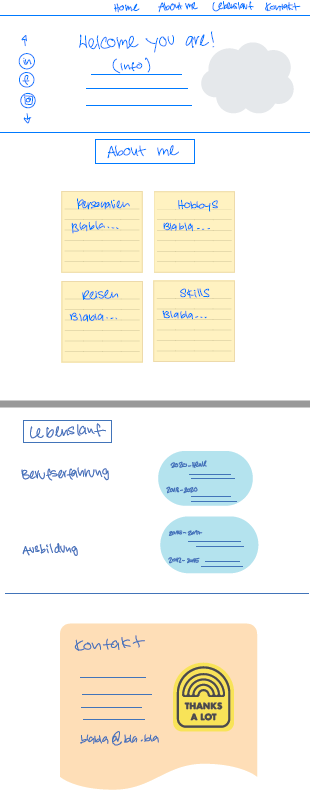 Home About me Lebenslauf Kontakt
Welcome you are!
(info)
in
f
About me
Personalien
Blabla...
Hobbys
Blabla...
Reisen
Blabla...
Skills
Blabla...
Lebenslauf
Berufserfahrung
2018-2020
Ausbildung
2012-2015
Kontakt
blabla@bla.bla
THANKS
A LOT